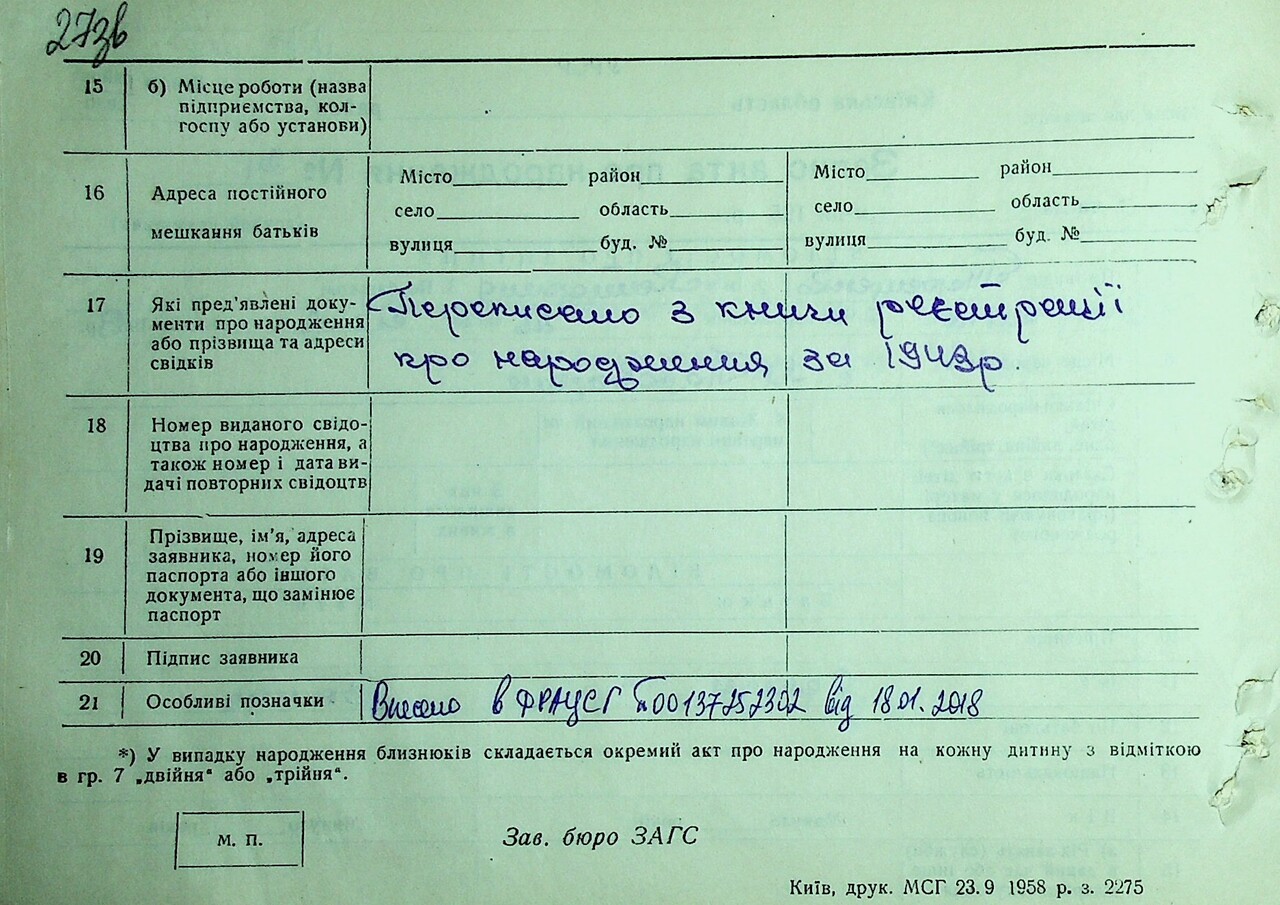 273в
15 б) Місце роботи (назва
підприємства, кол-
госпу або установи)
16 Адреса постійного
мешкання батьків
Місто район
село область
вулиця буд. №
Місто район
село область
вулиця буд. №
17 Які пред'явлені доку-
менти про народження
або прізвища та адреси
свідків
Переписано з книги реєстрації
про народження за 1949р.
18 Номер виданого свідо-
цтва про народження, а
також номер і дата ви-
дачі повторних свідоцтв
19 Прізвище, ім'я, адреса
заявника, номер його
паспорта або іншого
документа, що замінює
паспорт
20 Підпис заявника
21 Особливі позначки
Внесено в ДРАЦСГ 00137257302 від 18.01.2018
*) У випадку народження близнюків складається окремий акт про народження на кожну дитину з відміткою
в гр. 7 „двійня" або „трійня".
М. П.
Зав. бюро ЗАГС
Київ, друк. МСГ 23.9 1958 р. з. 2275